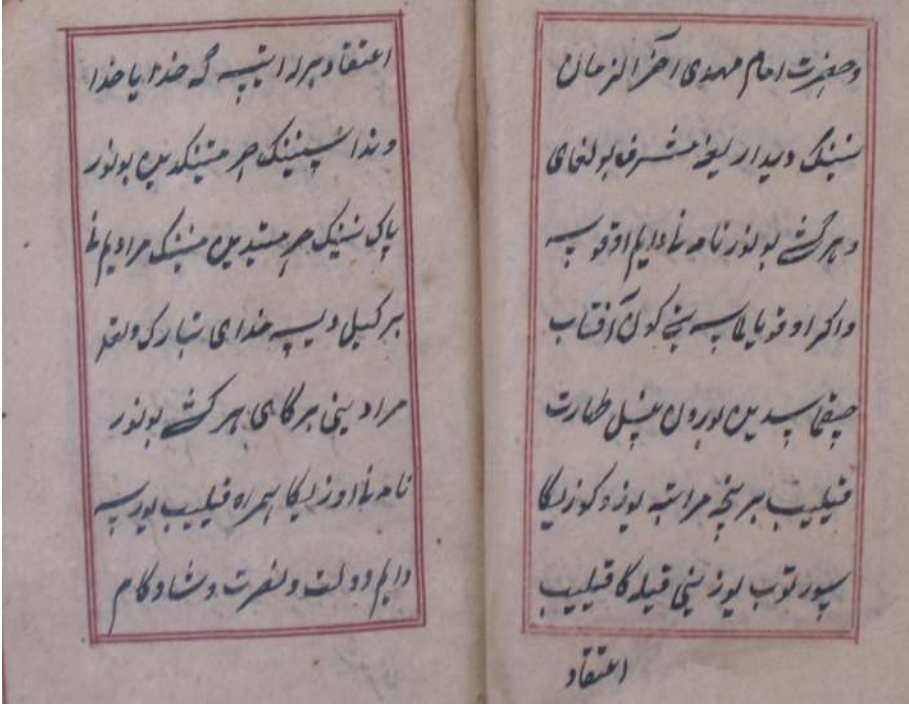 و حضرت امام مهدی آخر الزمان
نینک دیدار لیغه مشرف بولغای
و هر کشی بو نور نامه نی دایم اوقوسه
و اکر اوقویالماسه نچی کون آفتاب
چیقماسدین بورون غسل طهارت
قیلیب بر نچه مراتبه یوز و کوزلیکا
سورتوب یوزینی قبله کا قیلیب
اعتقاد
اعتقاد برله ایتسه که خدایا خدا
وندا سینینک حرمتینکدین بو نور
پاک نینک حرمتیدین مینینک مرادیم
بر کیل دیسه خدای تبارک و تعالی
مرادینی برکای هر کشی بو نور
نامه نی اوزیکا همراه قیلیب یورسه
دایم دولت و نصرت و شاد کام